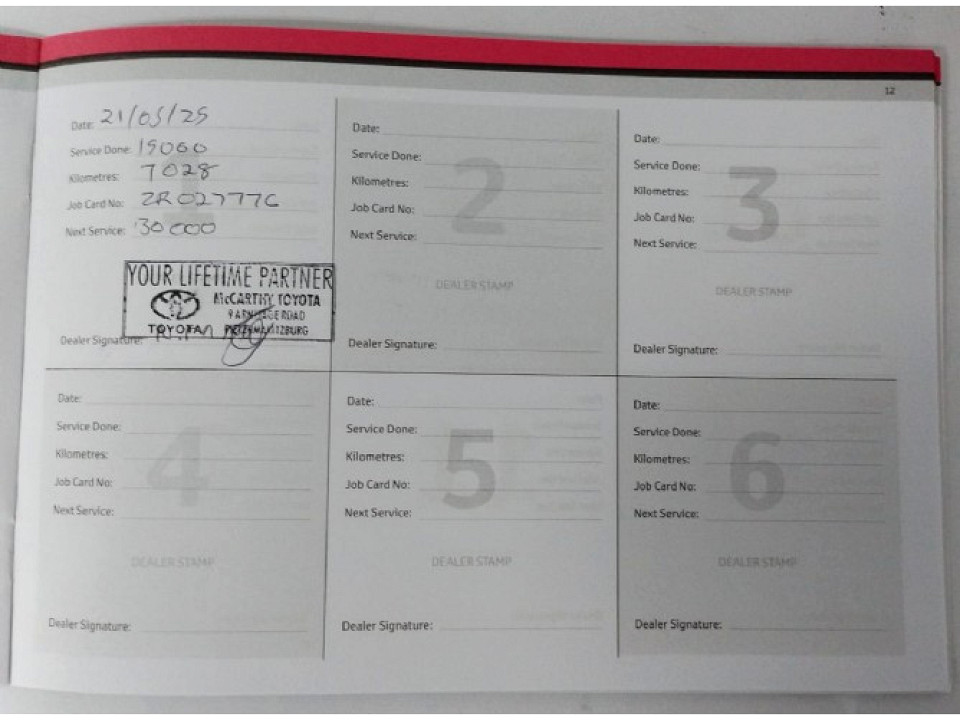 12
Date: 21/05/25
Service Done: 15000
Kilometres: 7028
Job Card No: ZR02777C
Next Service: 30 000
YOUR LIFETIME PARTNER
McCARTHY TOYOTA
9 ARMITAGE ROAD
TOYOTA PIETERMARITZBURG
Dealer Signature:
Date:
Service Done:
Kilometres:
Job Card No:
Next Service:
2
DEALER STAMP
Dealer Signature:
Date:
Service Done:
Kilometres:
Job Card No:
Next Service:
3
DEALER STAMP
Dealer Signature:
Date:
Service Done:
Kilometres:
Job Card No:
Next Service:
4
DEALER STAMP
Dealer Signature:
Date:
Service Done:
Kilometres:
Job Card No:
Next Service:
5
DEALER STAMP
Dealer Signature:
Date:
Service Done:
Kilometres:
Job Card No:
Next Service:
6
DEALER STAMP
Dealer Signature: